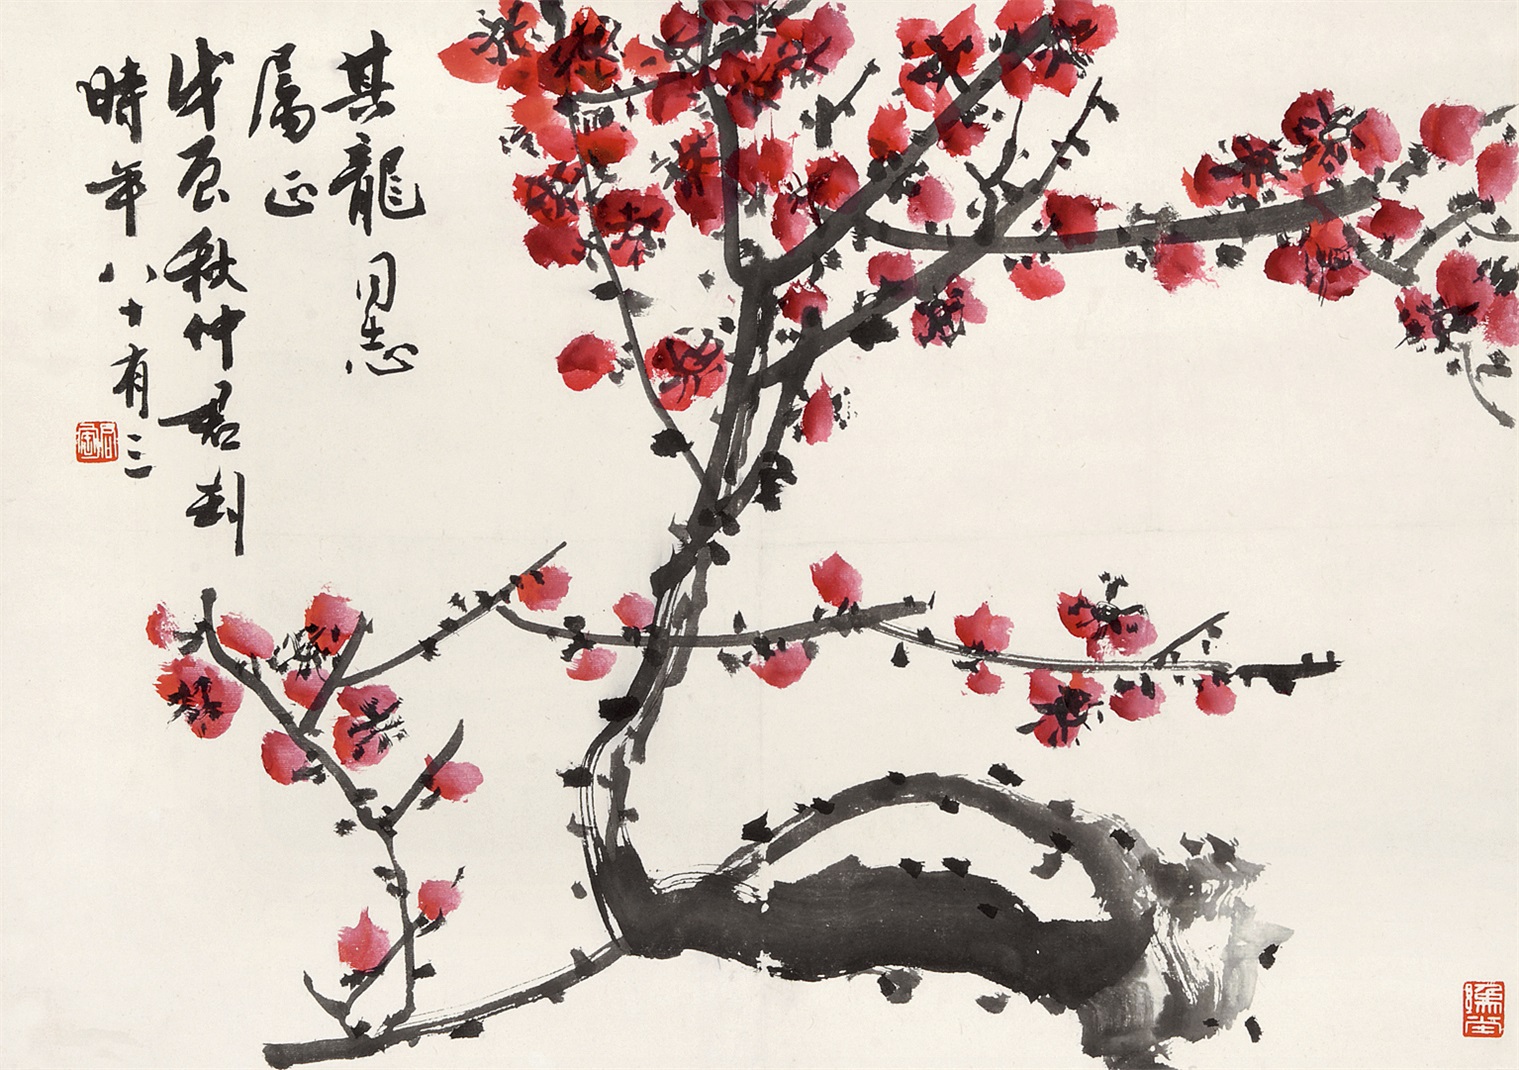 其龍同志
属正
戊辰秋仲君匋
時年八十有三